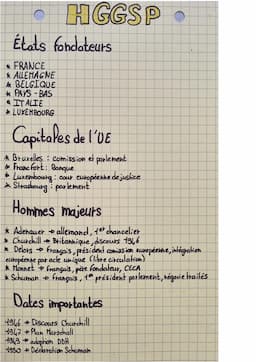 HGGSP
États fondateurs
* FRANCE
* ALLEMAGNE
* BELGIQUE
* PAYS-BAS
* ITALIE
* LUXEMBOURG
Capitales de l'UE
* Bruxelles : comission et parlement
* Francfort : Banque
* Luxembourg : cour européenne de justice
* Strasbourg : parlement
Hommes majeurs
* Adenauer → allemand, 1er chancelier
* Churchill → Britannique, discours 1946
* Delors → français, président comission européenne, intégration
européenne par acte unique (libre circulation)
* Monnet → français, père fondateur, CECA
* Schuman → français, 1er président parlement, négocie traités
Dates importantes
1946 → Discours Churchill
1947 → Plan Marshall
→ adoption DDH
1950 → Déclaration Schuman